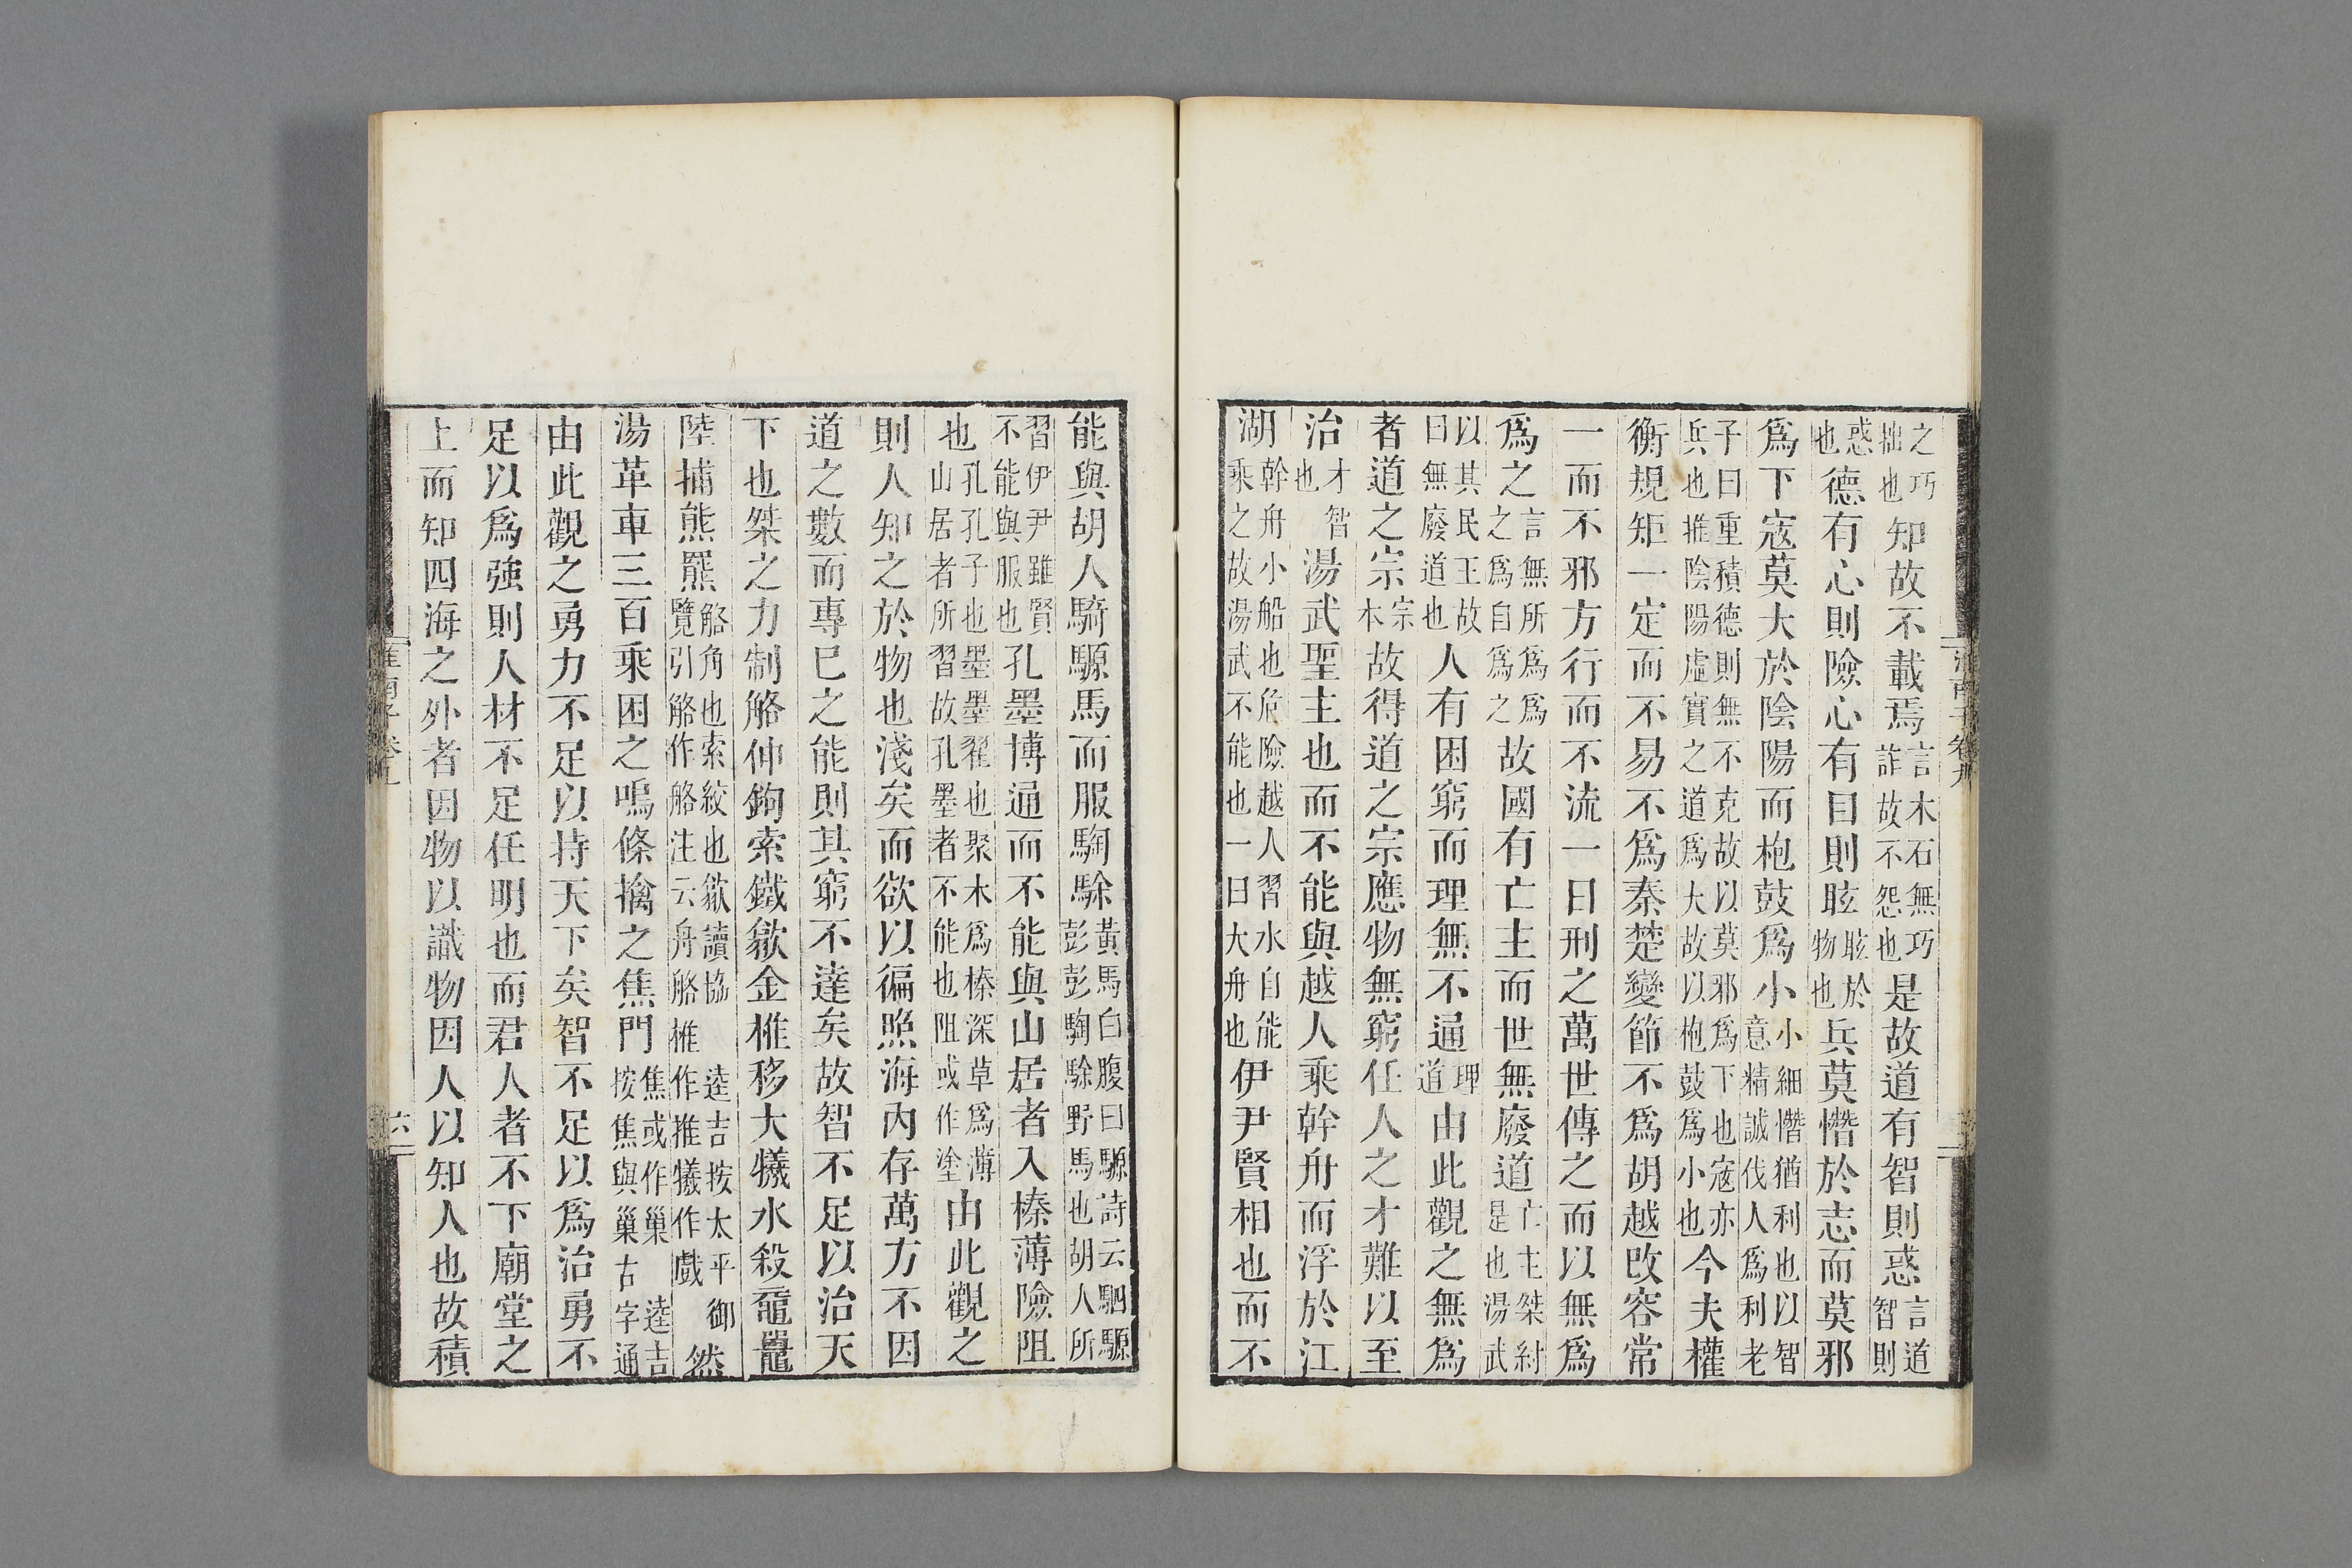 之巧拙也知故不載焉言木石無巧詐故不怨也是故道有智則惑言道智則
惑也德有心則險心有目則眩眩於物也兵莫憯於志而莫邪
爲下寇莫大於陰陽而枹鼓爲小小細憯猶利也以智意精誠伐人爲利老
子曰重積德則無不克故以莫邪爲下也寇亦兵也推陰陽虛實之道爲大故以枹鼓爲小也今夫權
衡規矩一定而不易不爲秦楚變節不爲胡越改容常
一而不邪方行而不流一日刑之萬世傳之而以無爲
爲之言無所爲爲之爲自爲之故國有亡主而世無廢道亡主桀紂是也湯武
以其民王故曰無廢道也人有困窮而理無不通理道由此觀之無爲
者道之宗宗本故得道之宗應物無窮任人之才難以至
治才智也湯武聖主也而不能與越人乘幹舟而浮於江
湖幹舟小船也危險越人習水自能乘之故湯武不能也一曰大舟也伊尹賢相也而不
能與胡人騎騵馬而服騊駼黃馬白腹曰騵詩云駟騵彭彭騊駼野馬也胡人所
習伊尹雖賢不能與服也孔墨博通而不能與山居者入榛薄險阻
也孔孔子也墨墨翟也聚木爲榛深草爲薄山居者所習故孔墨者不能也阻或作塗由此觀之
則人知之於物也淺矣而欲以徧照海內存萬方不因
道之數而專己之能則其窮不達矣故智不足以治天
下也桀之力制觡伸鉤索鐵歙金椎移大犧水殺黿鼉
陸捕熊羆觡角也索絞也歙讀協覽引觡作觡注云舟觡椎逵吉按太平御作推犧作戲然
湯革車三百乘困之鳴條擒之焦門焦或作巢逵吉按焦與巢古字通
由此觀之勇力不足以持天下矣智不足以爲治勇不
足以爲強則人材不足任明也而君人者不下廟堂之
上而知四海之外者因物以識物因人以知人也故積